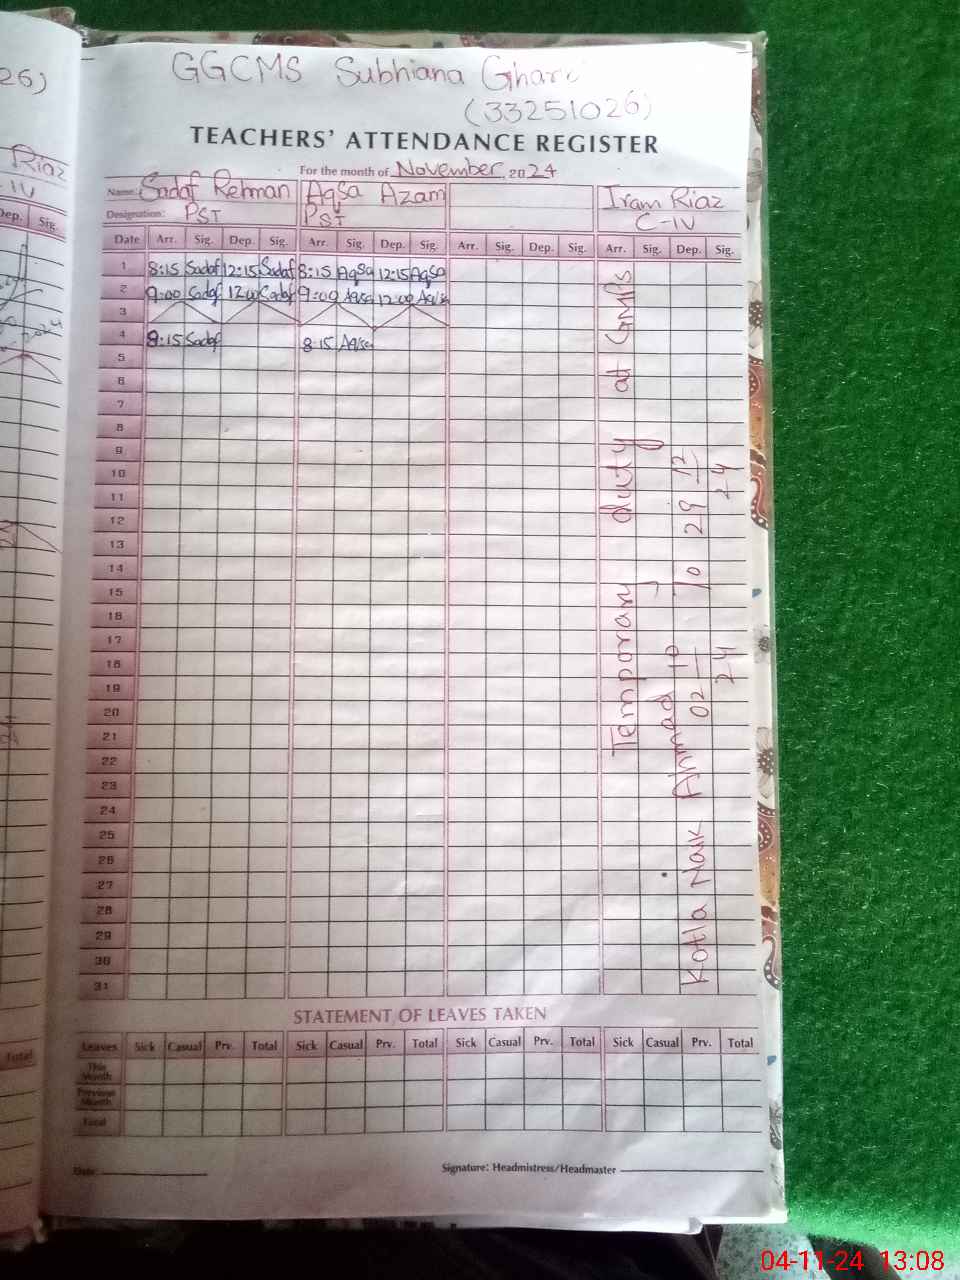 26)
Riaz
- IV
Dep. Sig.
Total
GGCMS Subhiana Gharbi
(33251026)
TEACHERS' ATTENDANCE REGISTER
For the month of November, 2024
Name: Sadaf Rehman Aqsa Azam Iram Riaz
Designation: PST PST C-IV
Date Arr. Sig. Dep. Sig. Arr. Sig. Dep. Sig. Arr. Sig. Dep. Sig. Arr. Sig. Dep. Sig.
1 8:15 Sadaf 12:15 Sadaf 8:15 Aqsa 12:15 Aqsa
2 9:00 Sadaf 12:00 Sadaf 9:00 Aqsa 12:00 Aqsa
3
4 8:15 Sadaf 8:15 Aqsa
5
6
7
8
9
10
11
12
13
14
15
16
17
18
19
20
21
22
23
24
25
26
27
28
29
30
31
Temporary duty at GMPS
Kotla Naik Ahmad 02-10-24 To 29-12-24
STATEMENT OF LEAVES TAKEN
Leaves Sick Casual Prv. Total Sick Casual Prv. Total Sick Casual Prv. Total Sick Casual Prv. Total
This Month
Previous Month
Total
Date Signature: Headmistress/Headmaster
04-11-24 13:08